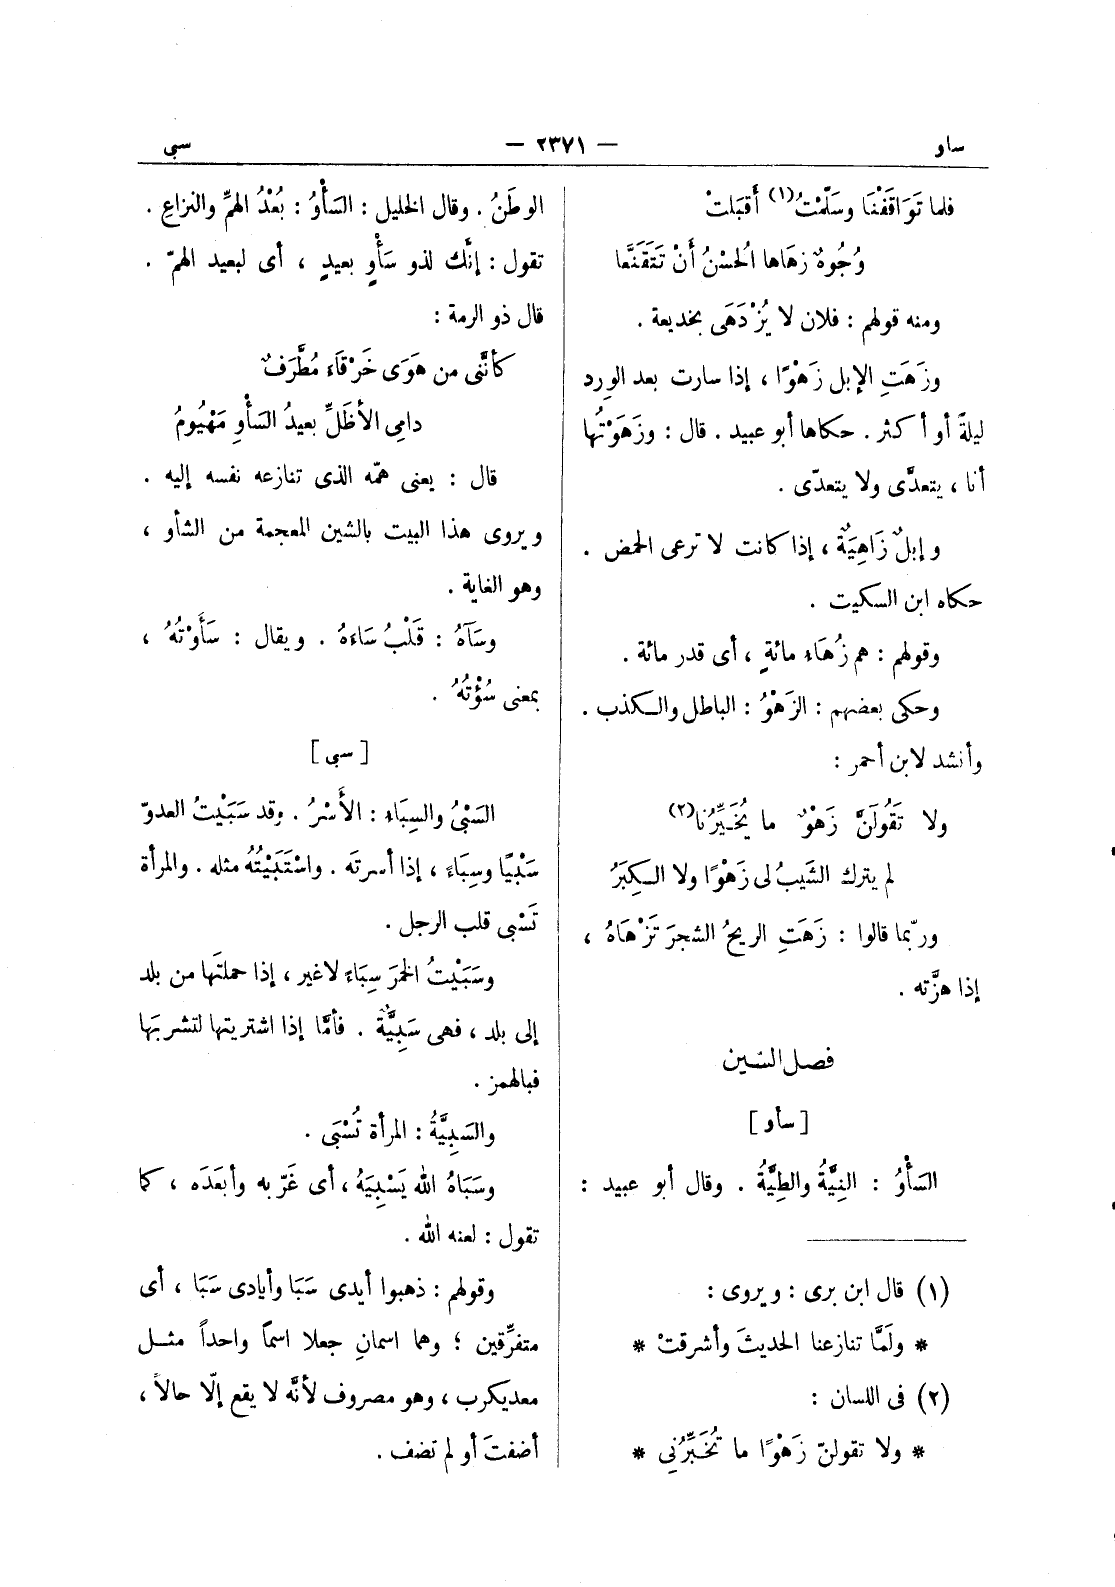 ساو — ٢٣٧١ — سبى
فلما تَوَاقَفْنَا وسَلَّمْتُ(١) أَقبَلتْ
وُجُوهٌ زهَاها الُحسْنُ أَنْ تَتَقَنَّعا
ومنه قولهم : فلان لا يُزْدَهَى بخديعة .
وزَهَتِ الإبل زَهْوًا ، إذا سارت بعد الوِرد
ليلةً أو أكثر . حكاها أبو عبيد . قال : وزَهَوْتُها
أنا ، يتعدَّى ولا يتعدّى .
وإبلٌ زَاهِيَةٌ ، إذا كانت لا ترعى الحمض .
حكاه ابن السكيت .
وقولهم : هم زُهَاء مائةٍ ، أى قدر مائة .
وحكى بعضهم : الزَهْوُ : الباطل والكذب .
وأنشد لابن أحمر :
ولا تَقُولَنَّ زَهْوٌ ما يُخَـيِّرُنا(٢)
لم يترك الشَيبُ لى زَهْوًا ولا الكِبَرُ
وربّما قالوا : زَهَتِ الريحُ الشجرَ تَزْهَاهُ ،
إذا هزَّته .
فصل السّين
[ سأو ]
السَأْوُ : النِيَّةُ والطِيَّةُ . وقال أبو عبيد :
(١) قال ابن برى : ويروى :
* ولَمَّا تنازعنا الحديثَ وأشرقتْ *
(٢) فى اللسان :
* ولا تقولنّ زَهْوًا ما تُخَبِّرُنِي *
الوطَنُ . وقال الخليل : السَأْوُ : بُعْدُ الهمِّ والنزاعِ .
تقول : إنَّك لذو سَأْوٍ بعيدٍ ، أى لبعيد الهمّ .
قال ذو الرمة :
كأنَّنى من هَوَى خَرْقَاءَ مُطَّرَفٌ
دامِى الأظَلِّ بعيدُ السَأْوِ مَهْيُومُ
قال : يعنى همّه الذى تنازعه نفسه إليه .
ويروى هذا البيت بالشين المعجمة من الشأو ،
وهو الغاية .
وسَآهُ : قَلْبُ سَاءَهُ . ويقال : سَأَوْتُهُ ،
بمعنى سُؤْتُهُ .
[ سبى ]
السَبْىُ والسِبَاء : الأَسْرُ . وقد سَبَيْتُ العدوّ
سَبْيًا وسِبَاءَ ، إذا أسرتَه . واسْتَبَيْتُهُ مثله . والمرأة
تَسْبِى قلب الرجل .
وسَبَيْتُ الخمرَ سِبَاءَ لاغير ، إذا حملتَها من بلد
إلى بلد ، فهى سَبِيَّةٌ . فأمَّا إذا اشتريتها لتشربَها
فبالهمز .
والسَبِيَّةُ : المرأة تُسْبَى .
وسَبَاهُ الله يَسْبِيَهُ ، أى غَرّبه وأبعَدَه ، كما
تقول : لعنه الله .
وقولهم : ذهبوا أيدى سَبَا وأيادى سَبَا ، أى
متفرِّقين ؛ وهما اسمانِ جعلا اسماً واحداً مثل
معديكرب ، وهو مصروف لأنَّه لا يقع إلّا حالاً ،
أضفتَ أو لم تضف .